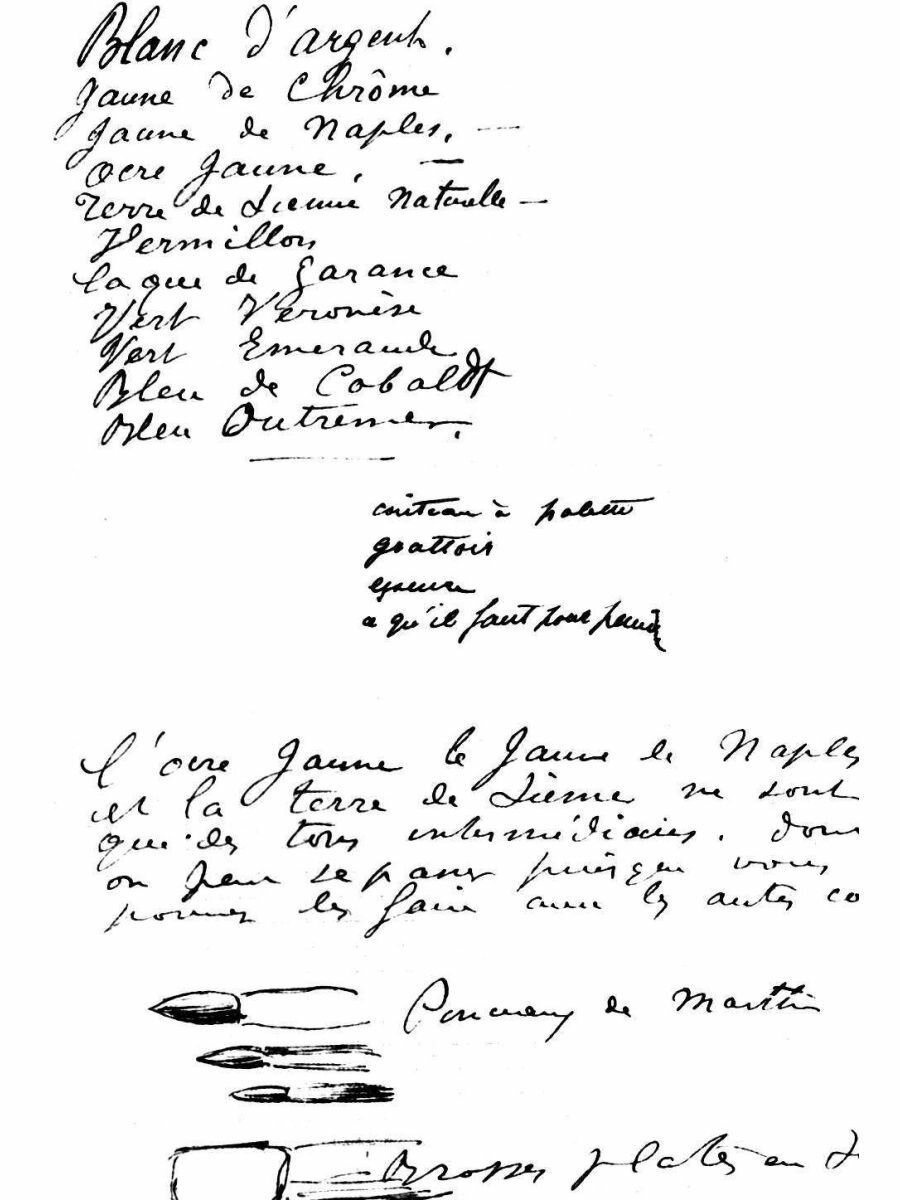 Blanc d'argent.
Jaune de Chrôme
Jaune de Naples. —
Ocre Jaune. —
Terre de Sienne Naturelle —
Vermillon
laque de Garance
Vert Véronèse
Vert Emeraude
Bleu de Cobaldt
Bleu Outremer.
couteau à palette
grattoir
essence
ce qu'il faut pour peindre
l'ocre Jaune le Jaune de Naples
et la terre de Sienne ne sont
que des tons intermédiaires. dont
on peut se passer puisque vous
pouvez les faire avec les autres co
Pinceaux de Marttre
Brosses plates en